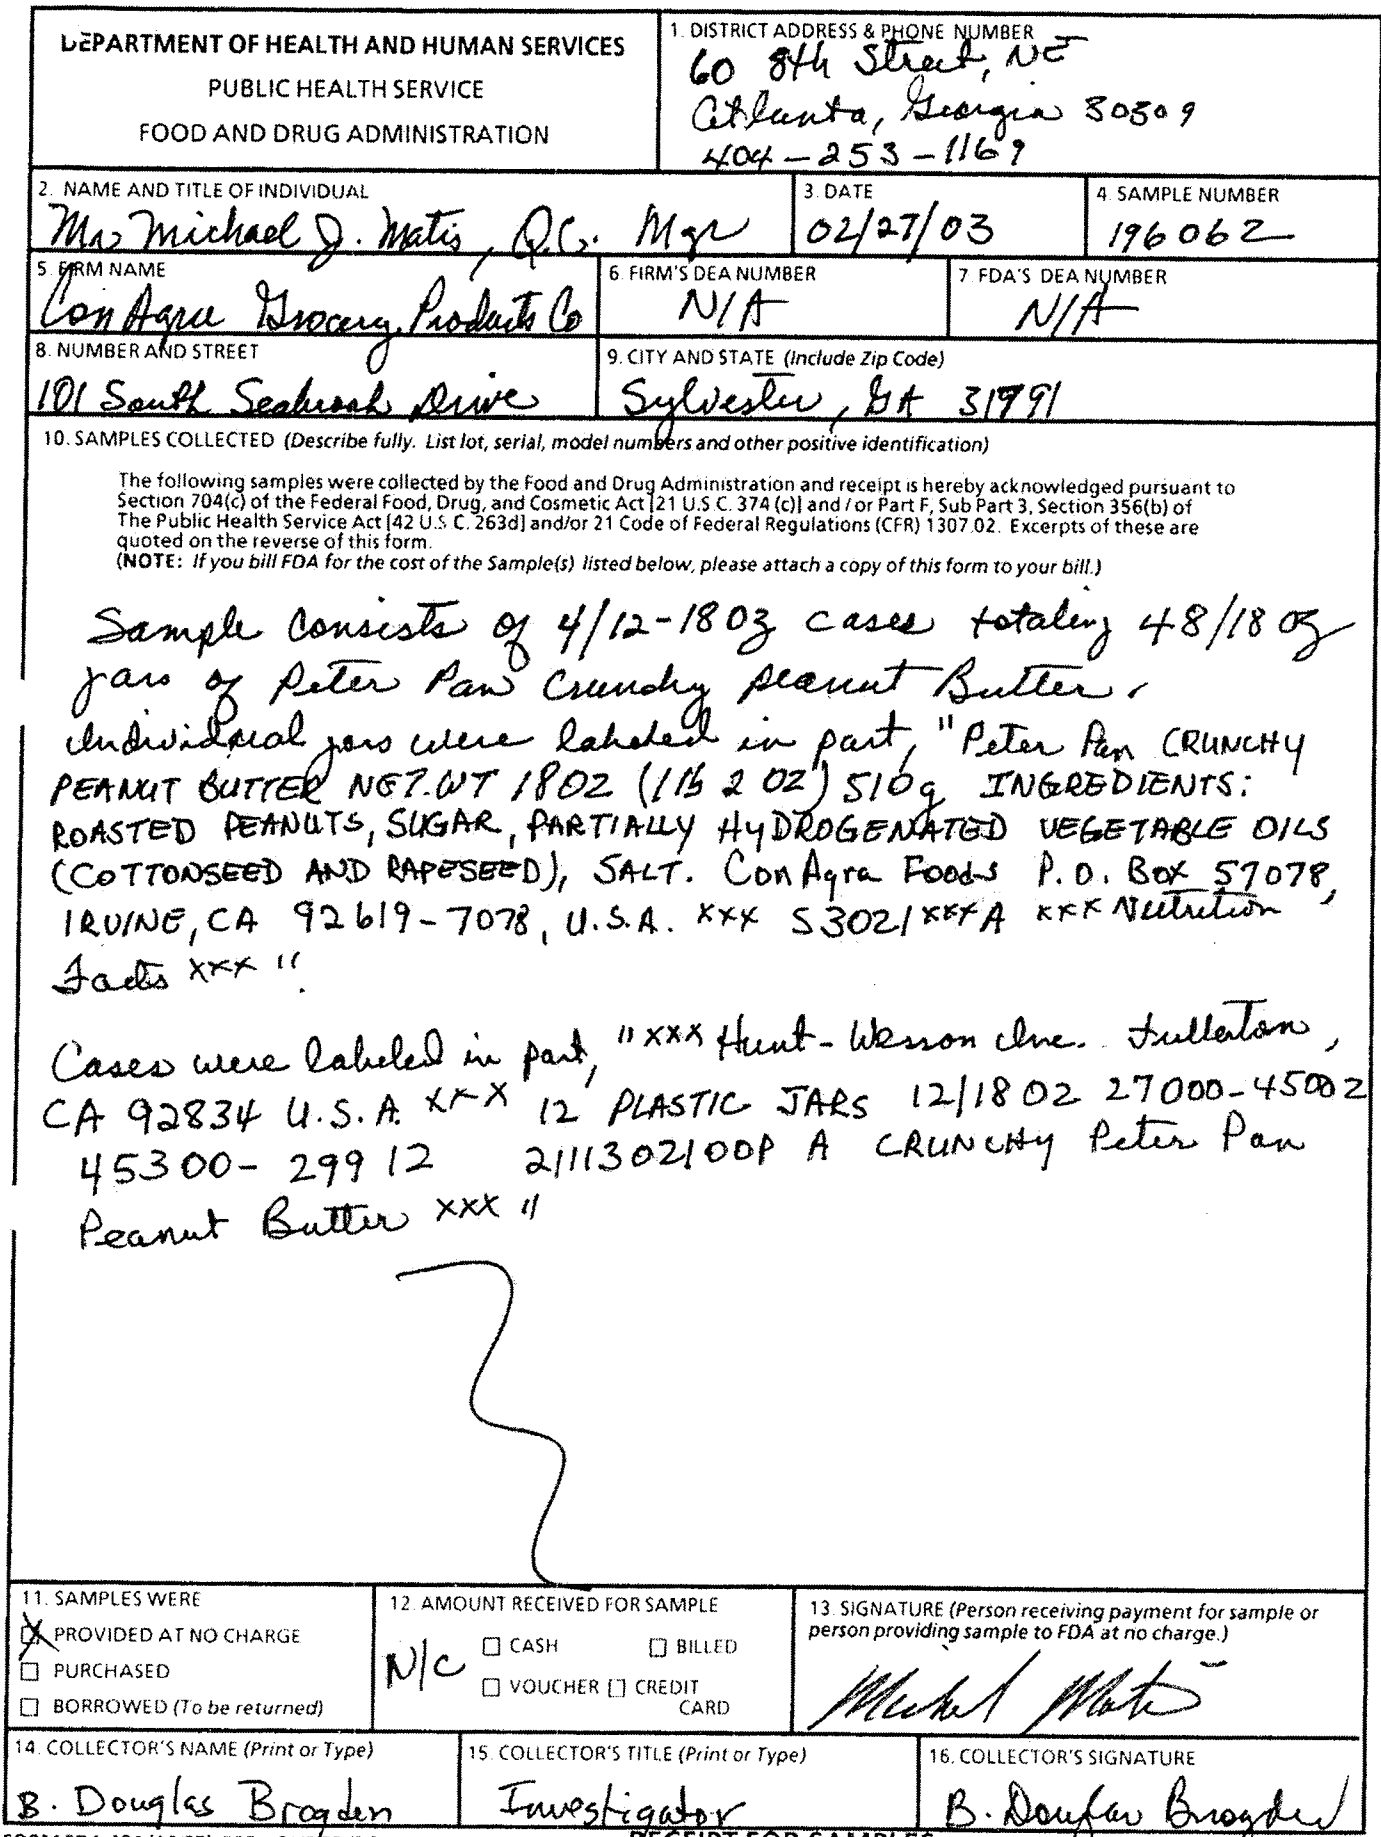 DEPARTMENT OF HEALTH AND HUMAN SERVICES
PUBLIC HEALTH SERVICE
FOOD AND DRUG ADMINISTRATION
1. DISTRICT ADDRESS & PHONE NUMBER
60 8th Street, NE
Atlanta, Georgia 30309
404-253-1169
2. NAME AND TITLE OF INDIVIDUAL
Mr Michael J. Matis, Q.C. Mgr
3. DATE
02/27/03
4. SAMPLE NUMBER
196062
5. FIRM NAME
ConAgra Grocery Products Co
6. FIRM'S DEA NUMBER
N/A
7. FDA'S DEA NUMBER
N/A
8. NUMBER AND STREET
101 South Seabrook Drive
9. CITY AND STATE (Include Zip Code)
Sylvester, GA 31791
10. SAMPLES COLLECTED (Describe fully. List lot, serial, model numbers and other positive identification)
The following samples were collected by the Food and Drug Administration and receipt is hereby acknowledged pursuant to
Section 704(c) of the Federal Food, Drug, and Cosmetic Act [21 U.S.C. 374 (c)] and / or Part F, Sub Part 3, Section 356(b) of
The Public Health Service Act [42 U.S.C. 263d] and/or 21 Code of Federal Regulations (CFR) 1307.02. Excerpts of these are
quoted on the reverse of this form.
(NOTE: If you bill FDA for the cost of the Sample(s) listed below, please attach a copy of this form to your bill.)
Sample Consists of 4/12-18oz cases totaling 48/18 oz
jars of Peter Pan Crunchy peanut Butter.
Individual jars were labeled in part, "Peter Pan CRUNCHY
PEANUT BUTTER NET.WT 18OZ (1lb 2 OZ) 510g INGREDIENTS:
ROASTED PEANUTS, SUGAR, PARTIALLY HYDROGENATED VEGETABLE OILS
(COTTONSEED AND RAPESEED), SALT. ConAgra Foods P.O. Box 57078,
IRVINE, CA 92619-7078, U.S.A. xxx S3021 xxx A xxx Nutrition
Facts xxx "
Cases were labeled in part, "xxx Hunt-Wesson Inc. Fullerton,
CA 92834 U.S.A. xxx 12 PLASTIC JARS 12/18 OZ 27000-45002
45300-299 12 2111302100P A CRUNCHY Peter Pan
Peanut Butter xxx "
11. SAMPLES WERE
PROVIDED AT NO CHARGE
PURCHASED
BORROWED (To be returned)
12. AMOUNT RECEIVED FOR SAMPLE
N/C
CASH BILLED
VOUCHER CREDIT
CARD
13. SIGNATURE (Person receiving payment for sample or
person providing sample to FDA at no charge.)
Michael Matis
14. COLLECTOR'S NAME (Print or Type)
B. Douglas Brogden
15. COLLECTOR'S TITLE (Print or Type)
Investigator
16. COLLECTOR'S SIGNATURE
B. Douglas Brogden
RECEIPT FOR SAMPLES